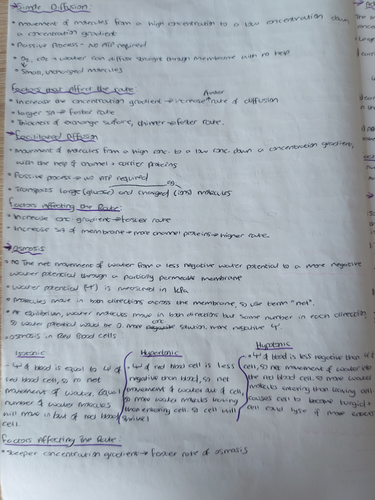 → Simple Diffusion:
• Movement of molecules from a high concentration to a low concentration down
a concentration gradient
• Passive process - no ATP required
• O₂, CO₂ + water can diffuse straight through membrane with no help
↳ Small, uncharged molecules
Factors that affect the rate
• Increase the concentration gradient → increase rate of diffusion
• Larger SA → faster rate
• Thickness of exchange surface, thinner → faster rate.
→ Facilitated Diffusion
• Movement of molecules from a high conc to a low conc down a concentration gradient,
with the help of channel + carrier proteins
• Passive process → no ATP required
• Transports large (glucose) and charged (ions) molecules
Factors Affecting the Rate:
• Increase conc gradient → faster rate
• Increase SA of membrane → more channel proteins → higher rate.
→ Osmosis
• The net movement of water from a less negative water potential to a more negative
water potential through a partially permeable membrane
• Water potential (Ψ) is measured in kPa
• Molecules move in both directions across the membrane, so use term "net".
• At equilibrium, water molecules move in both directions but same number in each direction
so water potential would be 0. more solution more negative Ψ.
• Osmosis in Red Blood Cells
Isotonic
• Ψ of blood is equal to Ψ of
red blood cell, so no net
movement of water. Equal
number of water molecules
will move in/out of red blood
cell.
Hypertonic
• Ψ of red blood cell is less
negative than blood, so net
movement of water out of cell,
so more water molecules leaving
than entering cell so cell will
shrivel
Hypotonic
• Ψ of blood is less negative than
cell, so net movement of water into
the red blood cell, so more water
molecules entering than leaving cell
causes cell to become turgid +
cell could lyse if more enters
cell
Factors Affecting the Rate:
• Steeper concentration gradient → faster rate of osmosis